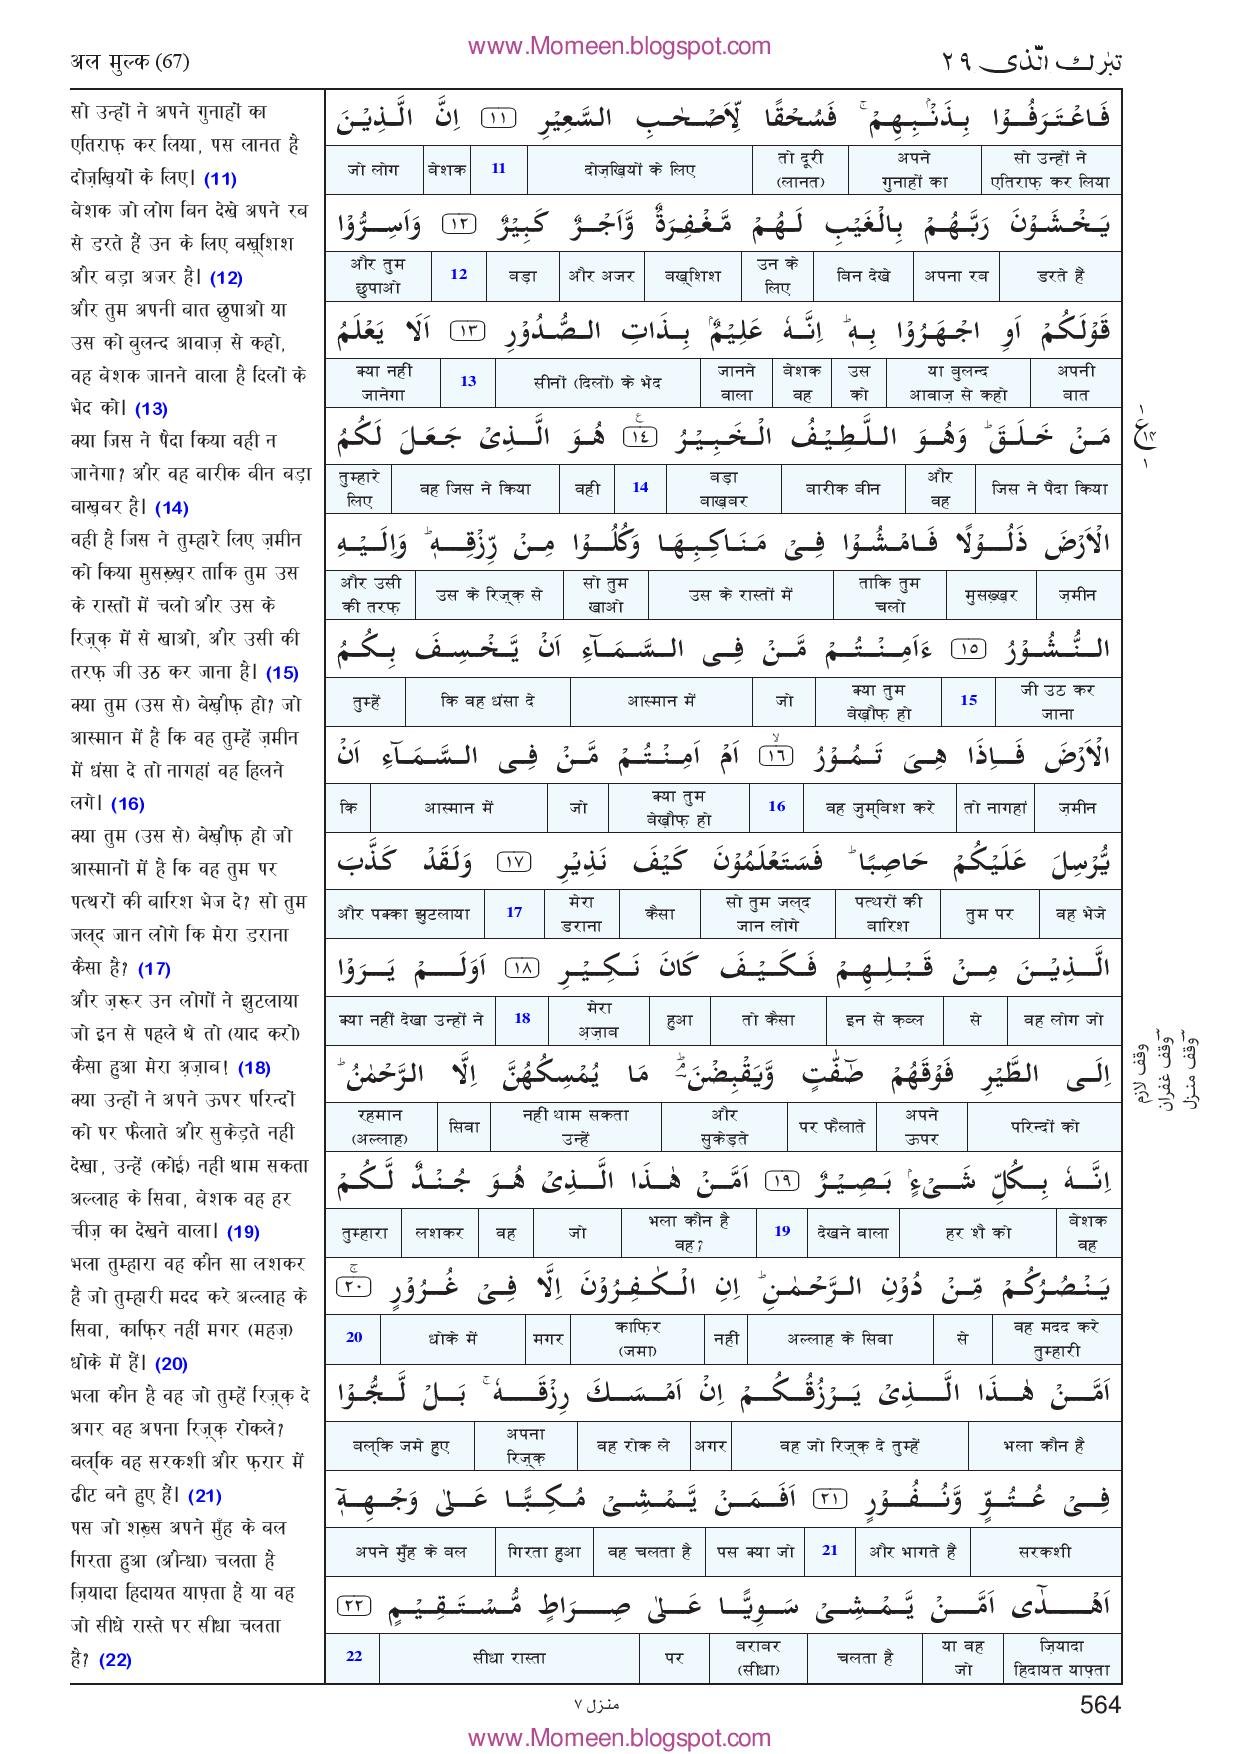 www.Momeen.blogspot.com
अल मुल्क (67)
تبٰرك الّذی ٢٩
सो उन्हों ने अपने गुनाहों का
एतिराफ़ कर लिया, पस लानत है
दोज़ख़ियों के लिए। (11)
बेशक जो लोग बिन देखे अपने रब
से डरते हैं उन के लिए बख़्शिश
और बड़ा अजर है। (12)
और तुम अपनी बात छुपाओ या
उस को बुलन्द आवाज़ से कहो,
वह बेशक जानने वाला है दिलों के
भेद को। (13)
क्या जिस ने पैदा किया वही न
जानेगा? और वह बारीक बीन बड़ा
बाख़बर है। (14)
वही है जिस ने तुम्हारे लिए ज़मीन
को किया मुसख़्ख़र ताकि तुम उस
के रास्तों में चलो और उस के
रिज़्क़ में से खाओ, और उसी की
तरफ़ जी उठ कर जाना है। (15)
क्या तुम (उस से) बेख़ौफ़ हो? जो
आस्मान में है कि वह तुम्हें ज़मीन
में धंसा दे तो नागहां वह हिलने
लगे। (16)
क्या तुम (उस से) बेख़ौफ़ हो जो
आस्मानों में है कि वह तुम पर
पत्थरों की बारिश भेज दे? सो तुम
जल्द जान लोगे कि मेरा डराना
कैसा है? (17)
और ज़रूर उन लोगों ने झुटलाया
जो इन से पहले थे तो (याद करो)
कैसा हुआ मेरा अ़ज़ाब! (18)
क्या उन्हों ने अपने ऊपर परिन्दों
को पर फैलाते और सुकेड़ते नहीं
देखा, उन्हें (कोई) नहीं थाम सकता
अल्लाह के सिवा, बेशक वह हर
चीज़ का देखने वाला। (19)
भला तुम्हारा वह कौन सा लशकर
है जो तुम्हारी मदद करे अल्लाह के
सिवा, काफ़िर नहीं मगर (महज़)
धोके में हैं। (20)
भला कौन है वह जो तुम्हें रिज़्क़ दे
अगर वह अपना रिज़्क़ रोकले?
बल्कि वह सरकशी और फ़रार में
ढीट बने हुए हैं। (21)
पस जो शख़्स अपने मुँह के बल
गिरता हुआ (औन्धा) चलता है
ज़ियादा हिदायत याफ़्ता है या वह
जो सीधे रास्ते पर सीधा चलता
है? (22)
فَاعْتَرَفُوْا بِذَنْۢبِهِمْ ۚ فَسُحْقًا لِّاَصْحٰبِ السَّعِيْرِ ١١ اِنَّ الَّذِيْنَ
जो लोग बेशक 11 दोज़ख़ियों के लिए तो दूरी (लानत) अपने गुनाहों का सो उन्हों ने एतिराफ़ कर लिया
يَخْشَوْنَ رَبَّهُمْ بِالْغَيْبِ لَهُمْ مَّغْفِرَةٌ وَّاَجْرٌ كَبِيْرٌ ١٢ وَاَسِرُّوْا
और तुम छुपाओ 12 बड़ा और अजर बख़्शिश उन के लिए बिन देखे अपना रब डरते हैं
قَوْلَكُمْ اَوِ اجْهَرُوْا بِهٖ ؕ اِنَّهٗ عَلِيْمٌۢ بِذَاتِ الصُّدُوْرِ ١٣ اَلَا يَعْلَمُ
क्या नहीं जानेगा 13 सीनों (दिलों) के भेद जानने वाला बेशक वह उस को या बुलन्द आवाज़ से कहो अपनी बात
مَنْ خَلَقَ ؕ وَهُوَ اللَّطِيْفُ الْخَبِيْرُ ١٤ ع هُوَ الَّذِیْ جَعَلَ لَكُمُ
तुम्हारे लिए वह जिस ने किया वही 14 बड़ा बाख़बर बारीक बीन और वह जिस ने पैदा किया
الْاَرْضَ ذَلُوْلًا فَامْشُوْا فِیْ مَنَاكِبِهَا وَكُلُوْا مِنْ رِّزْقِهٖ ؕ وَاِلَيْهِ
और उसी की तरफ़ उस के रिज़्क़ से सो तुम खाओ उस के रास्तों में ताकि तुम चलो मुसख़्ख़र ज़मीन
النُّشُوْرُ ١٥ ءَاَمِنْتُمْ مَّنْ فِی السَّمَآءِ اَنْ يَّخْسِفَ بِكُمُ
तुम्हें कि वह धंसा दे आस्मान में जो क्या तुम बेख़ौफ़ हो 15 जी उठ कर जाना
الْاَرْضَ فَاِذَا هِیَ تَمُوْرُ ١٦ لا اَمْ اَمِنْتُمْ مَّنْ فِی السَّمَآءِ اَنْ
कि आस्मान में जो क्या तुम बेख़ौफ़ हो 16 वह जुम्बिश करे तो नागहां ज़मीन
يُّرْسِلَ عَلَيْكُمْ حَاصِبًا ؕ فَسَتَعْلَمُوْنَ كَيْفَ نَذِيْرِ ١٧ وَلَقَدْ كَذَّبَ
और पक्का झुटलाया 17 मेरा डराना कैसा सो तुम जल्द जान लोगे पत्थरों की बारिश तुम पर वह भेजे
الَّذِيْنَ مِنْ قَبْلِهِمْ فَكَيْفَ كَانَ نَكِيْرِ ١٨ اَوَلَمْ يَرَوْا
क्या नहीं देखा उन्हों ने 18 मेरा अ़ज़ाब हुआ तो कैसा इन से क़ब्ल से वह लोग जो
اِلَی الطَّيْرِ فَوْقَهُمْ صٰٓفّٰتٍ وَّيَقْبِضْنَ ؔۘؕ مَا يُمْسِكُهُنَّ اِلَّا الرَّحْمٰنُ ؕ
रहमान (अल्लाह) सिवा नहीं थाम सकता उन्हें और सुकेड़ते पर फैलाते अपने ऊपर परिन्दों को
اِنَّهٗ بِكُلِّ شَیْءٍۢ بَصِيْرٌ ١٩ اَمَّنْ هٰذَا الَّذِیْ هُوَ جُنْدٌ لَّكُمْ
तुम्हारा लशकर वह जो भला कौन है वह? 19 देखने वाला हर शै को बेशक वह
يَنْصُرُكُمْ مِّنْ دُوْنِ الرَّحْمٰنِ ؕ اِنِ الْكٰفِرُوْنَ اِلَّا فِیْ غُرُوْرٍ ۚ ٢٠
20 धोके में मगर काफ़िर (जमा) नहीं अल्लाह के सिवा से वह मदद करे तुम्हारी
اَمَّنْ هٰذَا الَّذِیْ يَرْزُقُكُمْ اِنْ اَمْسَكَ رِزْقَهٗ ۚ بَلْ لَّجُّوْا
बल्कि जमे हुए अपना रिज़्क़ वह रोक ले अगर वह जो रिज़्क़ दे तुम्हें भला कौन है
فِیْ عُتُوٍّ وَّنُفُوْرٍ ٢١ اَفَمَنْ يَّمْشِیْ مُكِبًّا عَلٰی وَجْهِهٖۤ
अपने मुँह के बल गिरता हुआ वह चलता है पस क्या जो 21 और भागते हैं सरकशी
اَهْدٰۤی اَمَّنْ يَّمْشِیْ سَوِيًّا عَلٰی صِرَاطٍ مُّسْتَقِيْمٍ ٢٢
22 सीधा रास्ता पर बराबर (सीधा) चलता है या वह जो ज़ियादा हिदायत याफ़्ता
١
ع ١٤
١
وقف لازم
وقف غفران
وقف منزل
منزل ٧
564
www.Momeen.blogspot.com